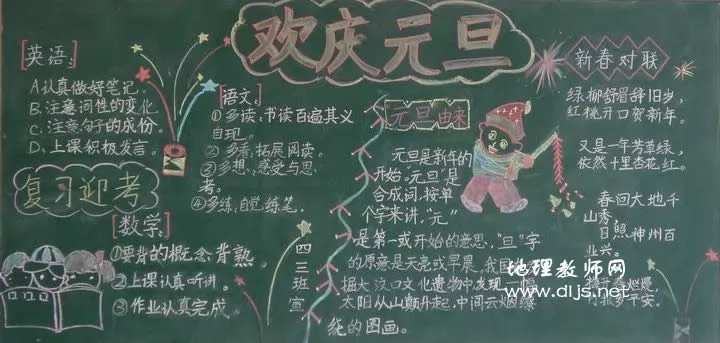 欢庆元旦
英语:
A.认真做好笔记.
B.注意词性的变化
C.注意句子的成份.
D.上课积极发言.
复习迎考
[数学]
①要背的概念:背熟.
②上课认真听讲.
③作业认真完成.
[语文]
①多读:书读百遍其义
自现.
②多看:拓展阅读.
③多想:感受与思
考.
④多练:自觉练笔.
四三班宣
元旦由来
元旦是新年的
开始。"元旦"是
合成词,按单
个字来讲,"元"
是第一或开始的意思,"旦"字
的原意是天亮或早晨,我国
掘大汶口文化遗物中,发现一幅
太阳从山巅升起,中间云烟缭
绕的图画。
新春对联
绿柳舒眉辞旧岁,
红桃开口贺新年。
又是一年芳草绿,
依然十里杏花红。
春回大地千
山秀,
日照神州百
业兴。
平安。
地理教师网
www.dljs.net